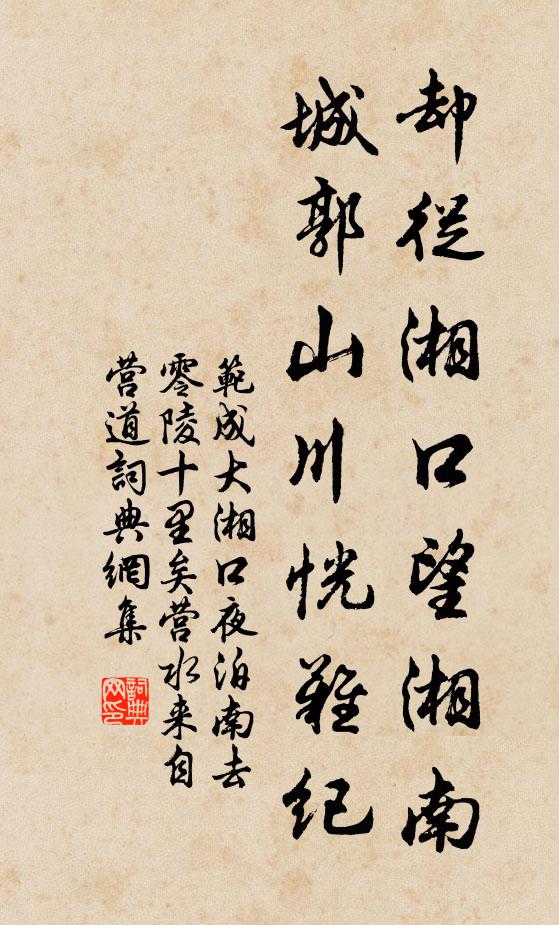 却從湘口望湘南
城郭山川恍難紀
範成大湘口夜泊南去
零陵十里矣营水来自
营道詞典網集
詞典
网印